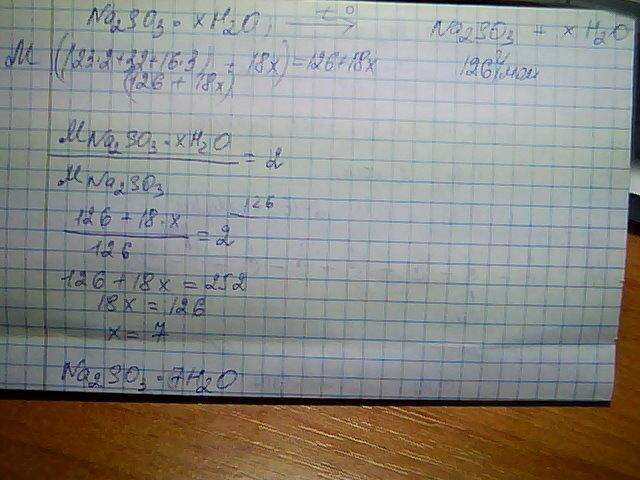 Na₂SO₃ · xH₂O →t° Na₂SO₃ + xH₂O
M (23·2+32+16·3) + 18x) = 126+18x 126 г/моль
(126 + 18x)
M Na₂SO₃ · xH₂O
M Na₂SO₃ = 2
126 + 18·x
126 = 2 126
126 + 18x = 252
18x = 126
x = 7
Na₂SO₃ · 7H₂O